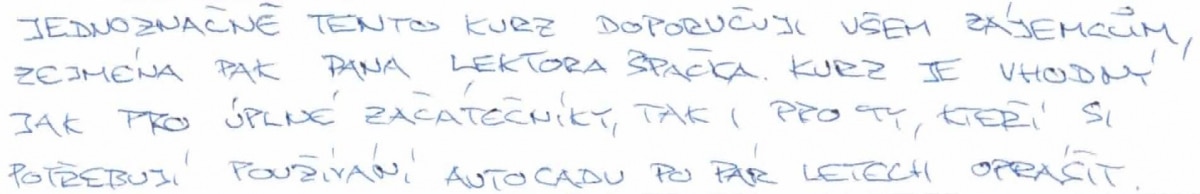 JEDNOZNAČNĚ TENTO KURZ DOPORUČUJI VŠEM ZÁJEMCŮM,
ZEJMÉNA PAK PANA LEKTORA ŠPAČKA. KURZ JE VHODNÝ
JAK PRO ÚPLNÉ ZAČÁTEČNÍKY, TAK I PRO TY, KTEŘÍ SI
POTŘEBUJÍ POUŽÍVÁNÍ AUTOCADU PO PÁR LETECH OPRÁŠIT.